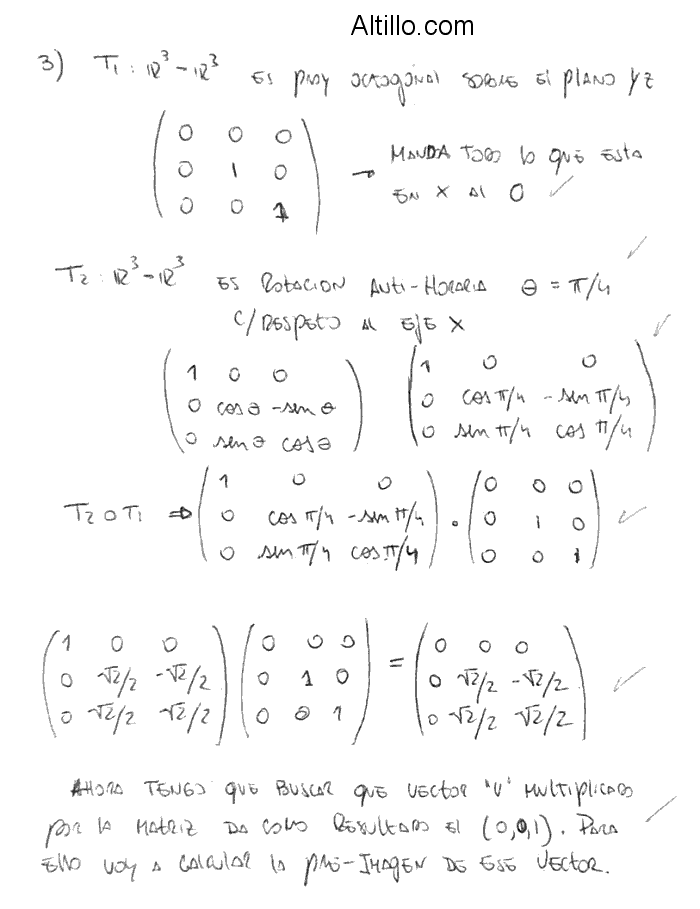 Altillo.com
3) T₁ : ℝ³ - ℝ³ ES PROY ORTOGONAL SOBRE EL PLANO YZ
0 0 0
0 1 0 → MANDA TODO LO QUE ESTA
0 0 1 EN X AL 0 ✓
T₂ : ℝ³ - ℝ³ ES ROTACION ANTI-HORARIA θ = π/4 ✓
C/RESPETO AL EJE X ✓
1 0 0 1 0 0
0 cosθ -senθ 0 cos π/4 - sen π/4
0 senθ cosθ 0 sen π/4 cos π/4
1 0 0 0 0 0
T₂ o T₁ ⇒ 0 cos π/4 -sen π/4 . 0 1 0 ✓
0 sen π/4 cos π/4 0 0 1
1 0 0 0 0 0 0 0 0
0 √2/2 -√2/2 0 1 0 = 0 √2/2 -√2/2 ✓
0 √2/2 √2/2 0 0 1 0 √2/2 √2/2
AHORA TENGO QUE BUSCAR QUE VECTOR "V" MULTIPLICADO
POR LA MATRIZ DA COMO RESULTADO EL (0,0,1). PARA ✓
ELLO VOY A CALCULAR LA PRE-IMAGEN DE ESE VECTOR.